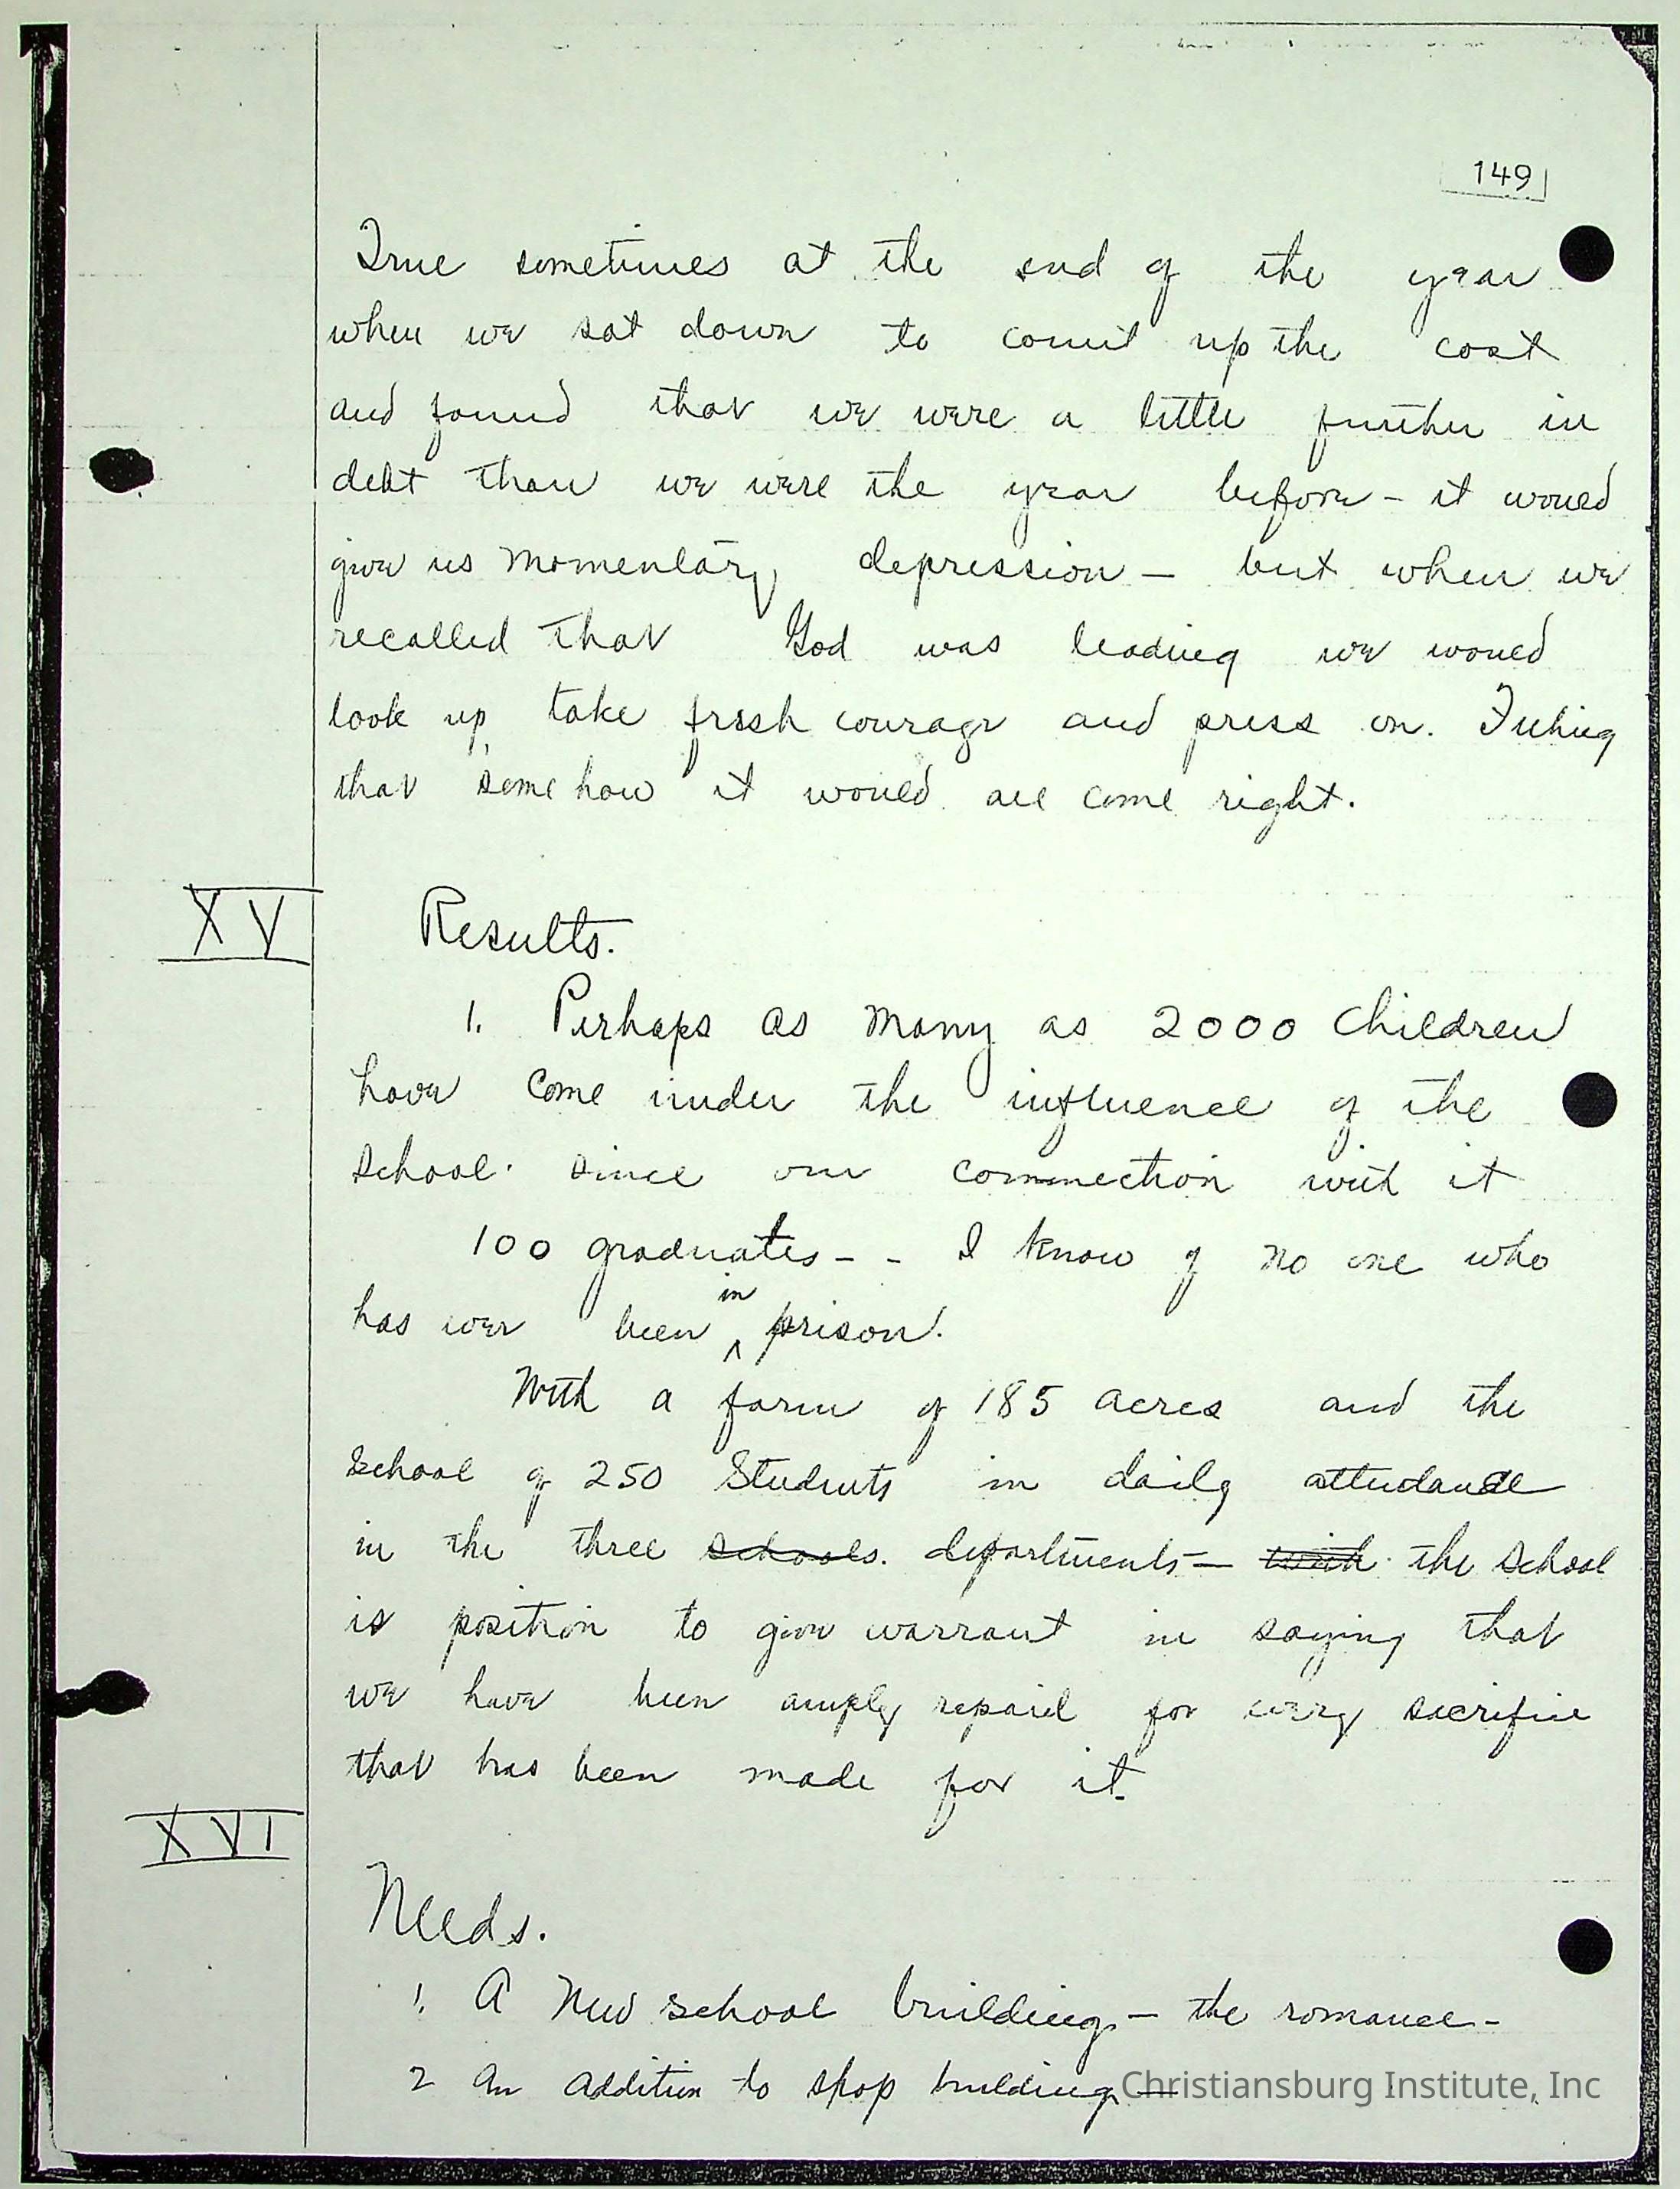 149
True sometimes at the end of the year
when we sat down to count up the cost
and found that we were a little further in
debt than we were the year before - it would
give us momentary depression - but when we
recalled that God was leading we would
look up, take fresh courage and press on. Feeling
that somehow it would all come right.
XV
Results.
1. Perhaps as many as 2000 children
have come under the influence of the
school. since our connection with it
100 graduates - - I know of no one who
has ever been in prison.
With a farm of 185 acres and the
school of 250 Students in daily attendance
in the three schools. departments - with the school
is position to give warrant in saying that
we have been amply repaid for every sacrifice
that has been made for it.
XVI
Needs.
1. A New school building - the romance -
2 An addition to shop building -
Christiansburg Institute, Inc